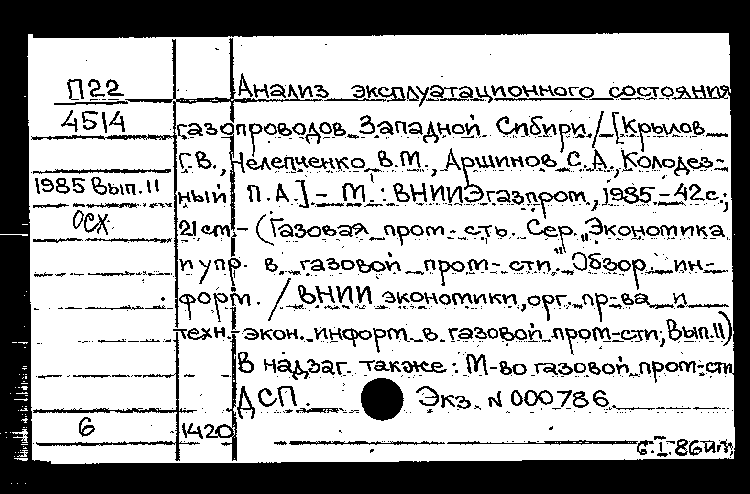 П22 Анализ эксплуатационного состояния
4514 газопроводов Западной Сибири / [Крылов
Г.В., Челепченко В.М., Аршинов С.А., Колодез-
1985 Вып. 11 ный П.А.] - М.: ВНИИЭгазпром, 1985 - 42с.;
ОСХ 21 см. - (Газовая пром-сть. Сер. "Экономика
и упр. в газовой пром-сти" Обзор. ин-
форм. / ВНИИ экономики, орг. пр-ва и
техн.-экон. информ. в газовой пром-сти; Вып. 11)
В надзаг. также: М-во газовой пром-сти
ДСП. Экз. N 000786
6 1420
6.I.86